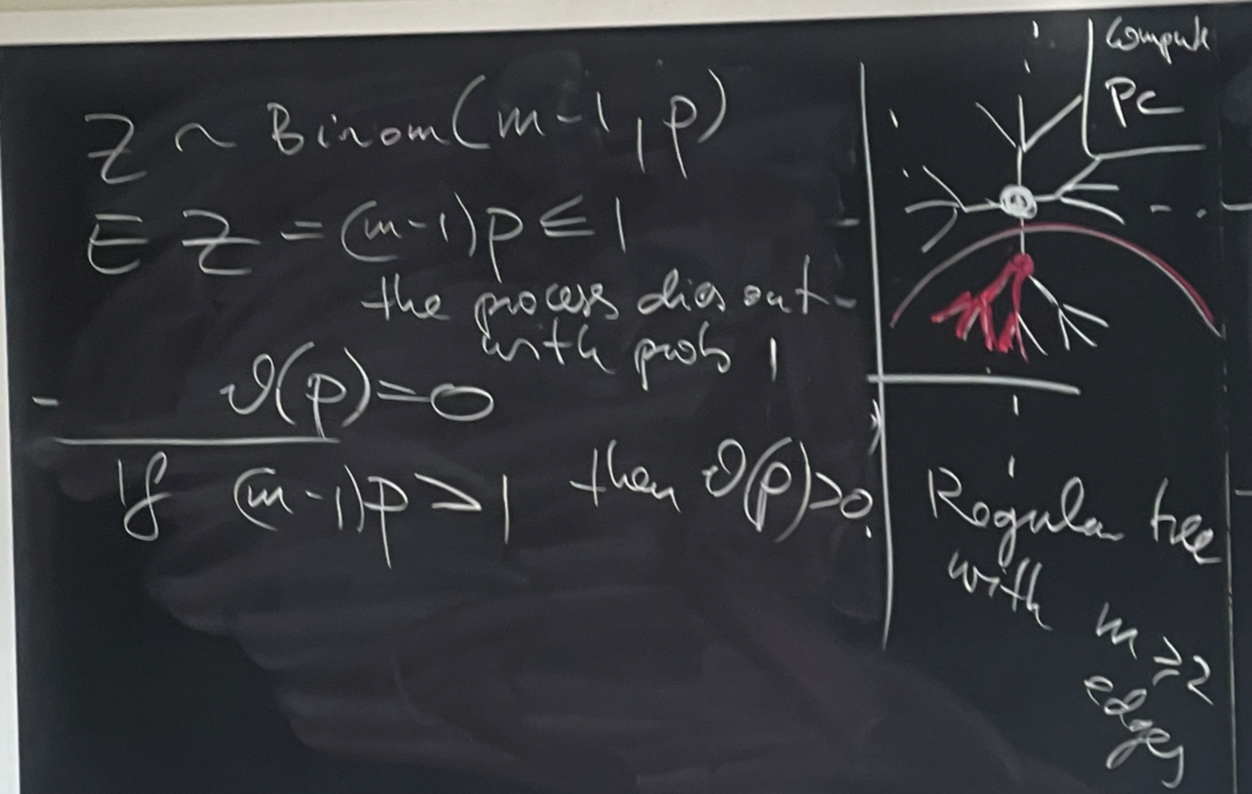 Z ~ Binom(m-1, p)
E Z = (m-1)p ≤ 1
the process dies out
with prob 1
ϑ(p)=0
If (m-1)p > 1 then ϑ(p)>0.
Compute
Pc
Regular tree
with m ≥ 2
edges